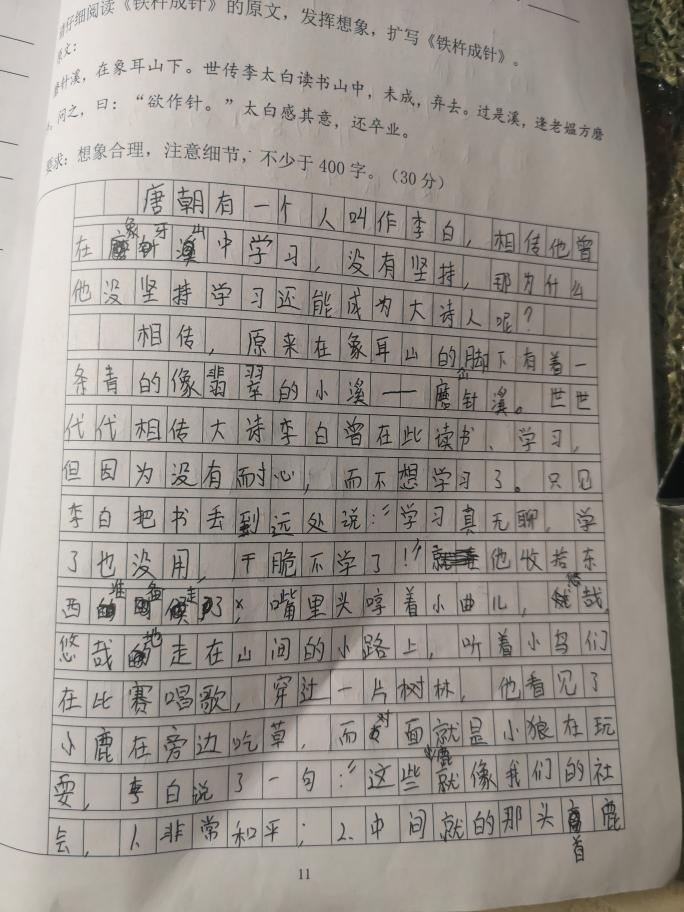 请仔细阅读《铁杵成针》的原文，发挥想象，扩写《铁杵成针》。
原文：
磨针溪，在象耳山下。世传李太白读书山中，未成，弃去。过是溪，逢老媪方磨
问之，曰：“欲作针。”太白感其意，还卒业。
要求：想象合理，注意细节，不少于400字。（30分）
唐朝有一个人叫作李白，相传他曾
在象牙山中学习，没有坚持，那为什么
他没坚持学习还能成为大诗人呢？
相传，原来在象耳山的脚下有着一
条青的像翡翠的小溪——磨针溪。世世
代代相传大诗李白曾在此读书、学习，
但因为没有耐心，而不想学习了。只见
李白把书丢到远处说：“学习真无聊，学
了也没用，干脆不学了！”他收拾东
西准备走了，嘴里头哼着小曲儿，悠哉
悠哉地走在山间的小路上，听着小鸟们
在比赛唱歌，穿过一片树林，他看见了
小鹿在旁边吃草，而对面就是小狼在玩
耍，李白说了一句：“这些小鹿就像我们的社
会，1、非常和平；2、中间就的那头鹿
着
11